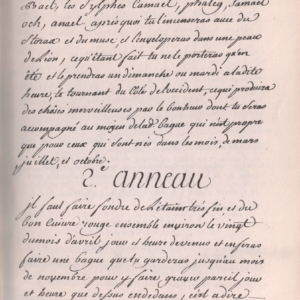 Bael, les Sylphes Camael, phaleg, Samael
och, anael, aprés quoi tu l'enunseras avec du
Storax et du musc et l'enveloperas dans une peau
de Lion, ce qu'étant fait tu ne le porteras qu'en
été et le prendras un dimanche ou mardi a ladite
heure, te tournant du Coté de l'occident, ce qui produira
des choses merveilleuses par le bonheur dont tu seras
accompagné au moyen de lad. bague qui n'est propre
que pour ceux qui sont nés dans les mois, de mars
juillet, et octobre.
2.e anneau
jl faut faire fondre de l'étain très fin et de
bon cuivre rouge ensemble environ le vingt
du mois d'avril jour et heure de venus et en feras
faire une bague que tu garderas jusqu'au mois
de novembre pour y faire graver pareil jour
et heure que dessus en dedans, c'est a dire